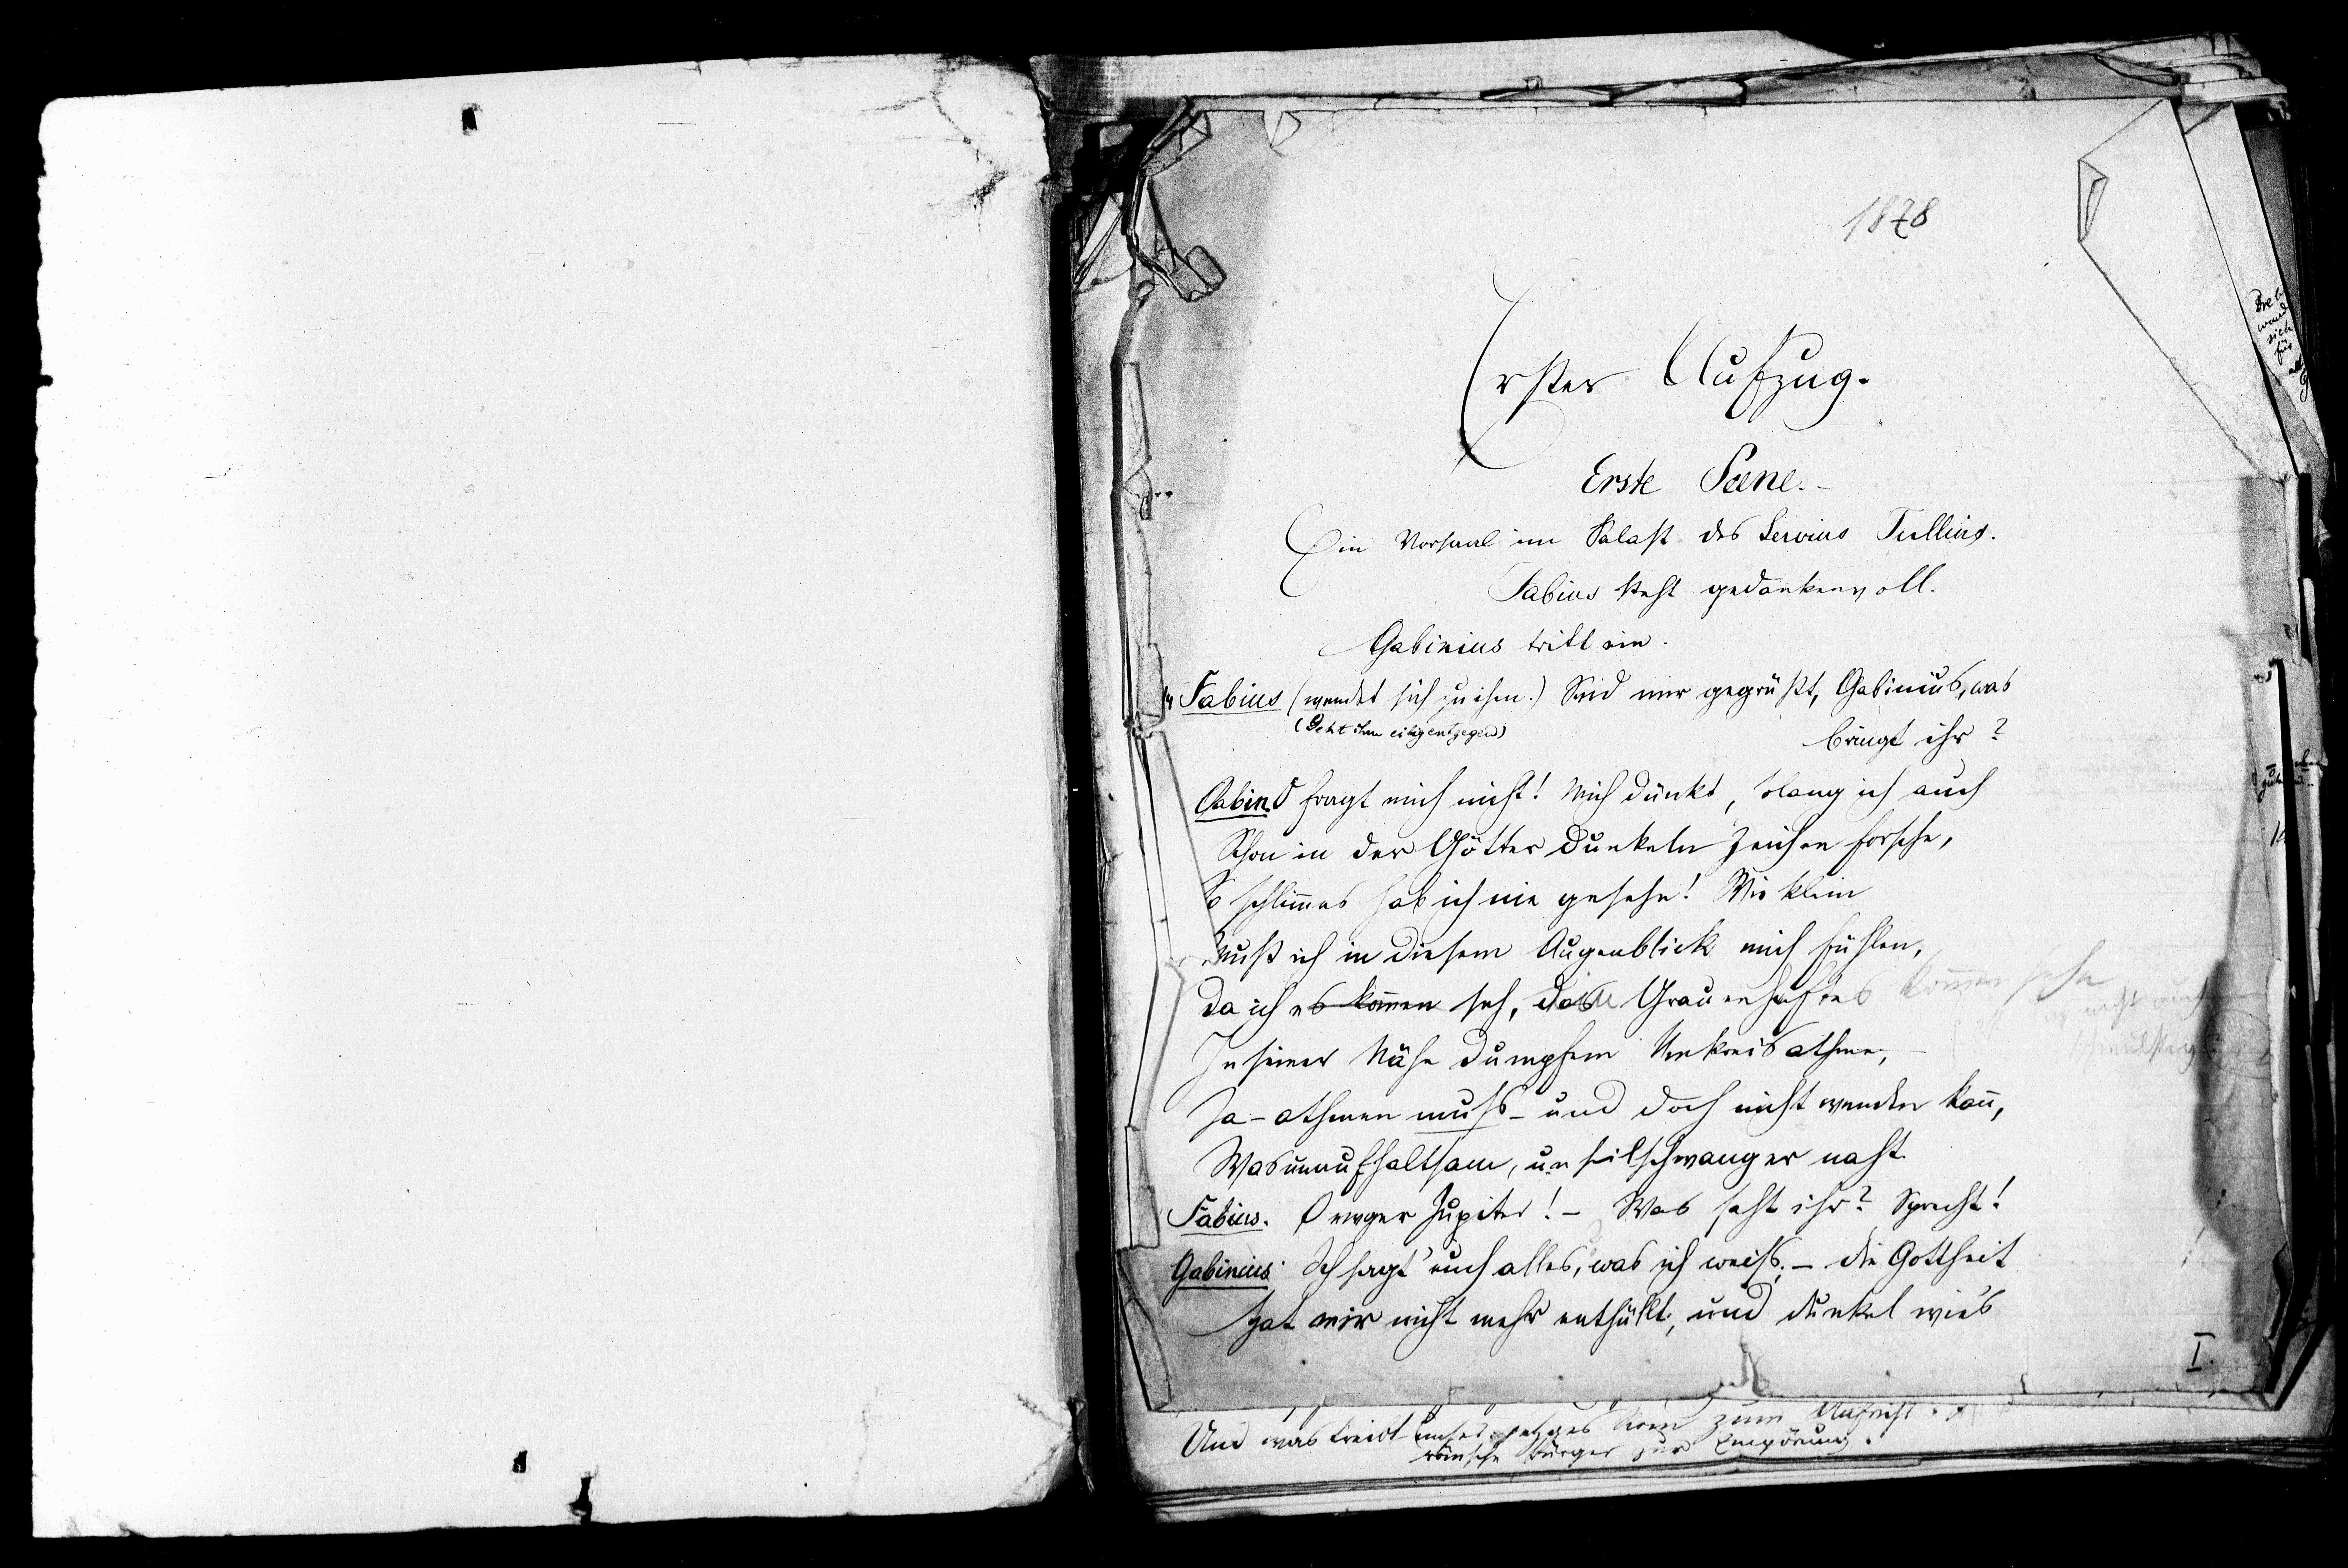 1878
Erster Aufzug.
Erste Scene. -
Ein Vorsaal im Palast des Servius Tullius.
Fabius steht gedankenvoll.
Gabinius tritt ein.
Fabius (wendet sich zu ihm.) Seid mir gegrüßt, Gabinius, was
(Geht ihm eilig entgegen)
bringt ihr?
Gabin. O fragt mich nicht! Mich dünkt, solang ich auch
Schon in der Götter dunkeln Zeichen forsche,
So schlim̄es hab ich nie gesehn! Wie klein
Muß ich in diesem Augenblick mich fühlen,
Da ich es kom̄en seh, Grauenhaftes kom̄en sehe
nicht
In seiner Nähe dumpfem Umkreis athme,
Ja - athmen muß - und doch nicht wenden kan̄,
Was unaufhaltsam, unheilschwanger naht.
Fabius. O ewger Jupiter! - Was saht ihr? Sprecht!
Gabinius: Ich sagt' euch alles, was ich weiß. - die Gottheit
Hat mir nicht mehr enthüllt, und dunkel wie's
I.
Und was treibt zum
römsche Bürger zur Empörung.